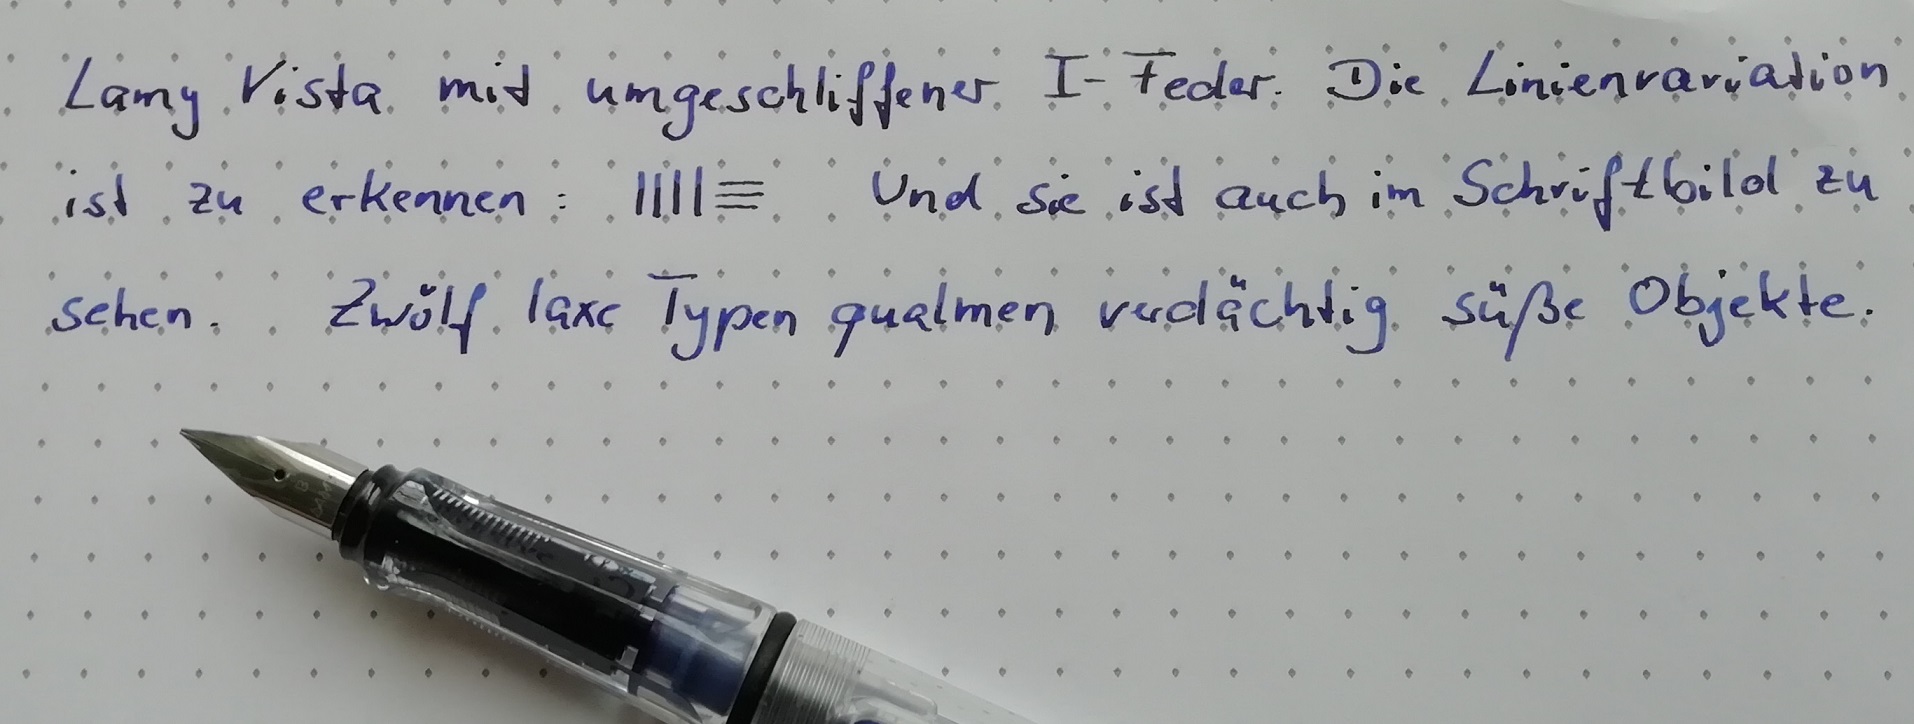 Lamy Vista mit umgeschliffener I-Feder. Die Linienvariation
ist zu erkennen: ||||≡ Und sie ist auch im Schriftbild zu
sehen. Zwölf laxe Typen qualmen verdächtig süße Objekte.
B
LAMY